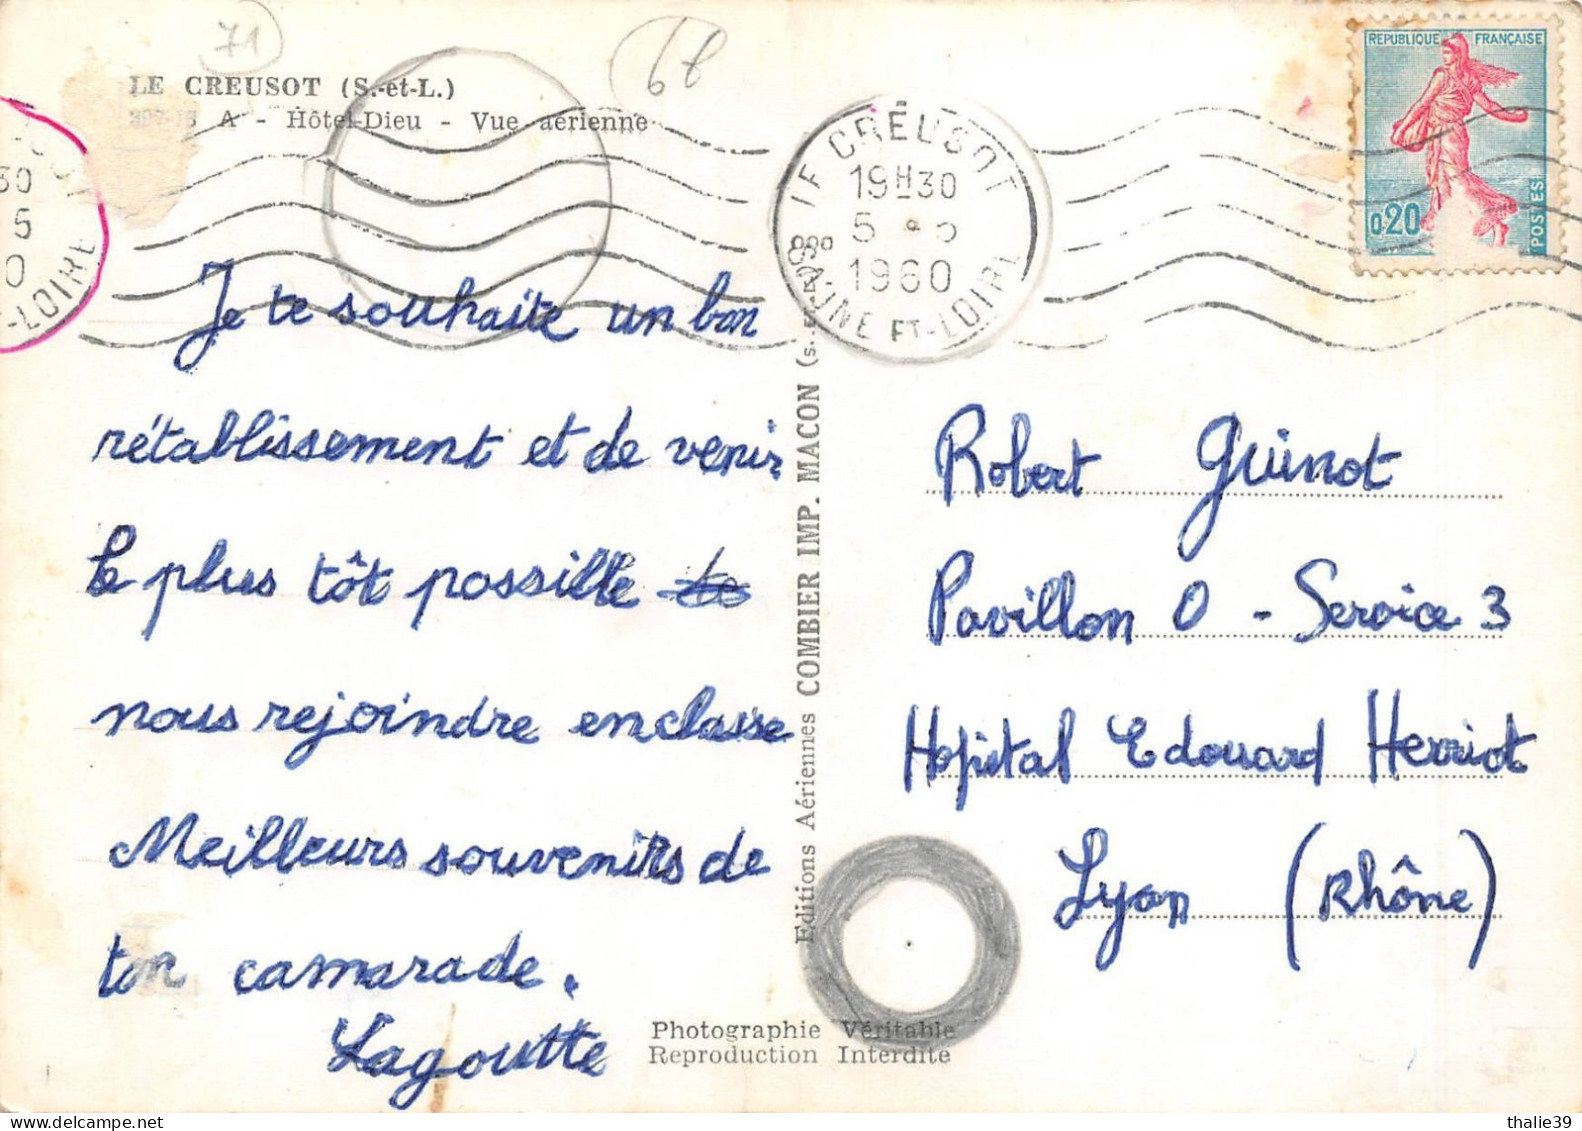 71
6f
LE CREUSOT (S.-et-L.)
A - Hôtel-Dieu - Vue aérienne
LE CREUSOT
19H30
5 - 5
1960
SAONE ET-LOIRE
REPUBLIQUE FRANÇAISE
0,20
POSTES
30
5
0
-LOIRE
Je te souhaite un bon
rétablissement et de venir
le plus tôt possible
nous rejoindre en classe
Meilleurs souvenirs de
ton camarade.
Lagoutte
Editions Aériennes COMBIER IMP. MACON
Robert Guinot
Pavillon O - Service 3
Hopital Edouard Herriot
Lyon (Rhône)
Photographie Véritable
Reproduction Interdite
thalie39